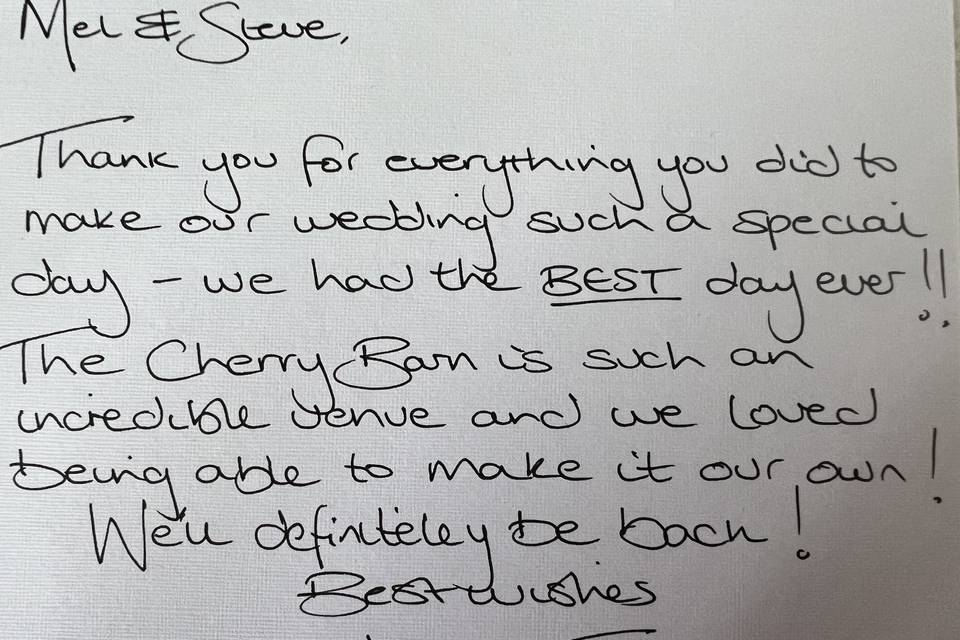 Mel & Steve,
Thank you for everything you did to
make our wedding such a special
day - we had the BEST day ever!!
The Cherry Barn is such an
incredible venue and we loved
being able to make it our own!
We'll definiteley be back!
Best wishes